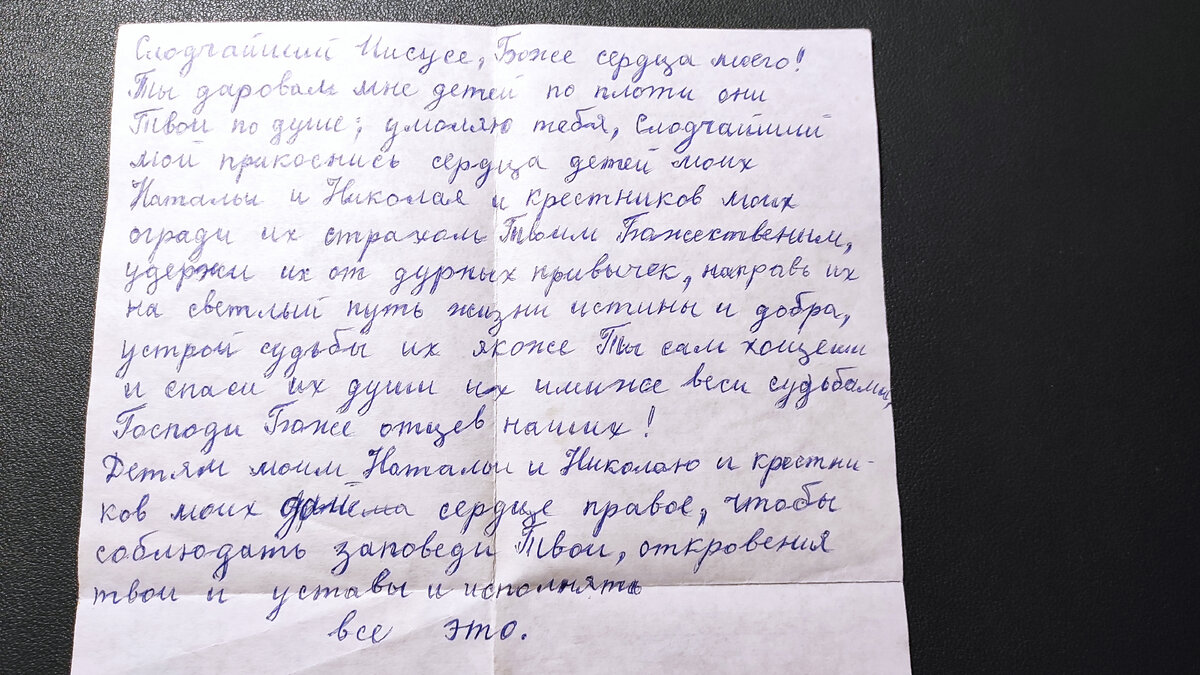 Слодчайший Иисусе, Боже сердца моего!
Ты даровал мне детей по плоти они
Твои по душе; умоляю тебя, Слодчайший
мой прикоснись сердца детей моих
Натальи и Николая и крестников моих
огради их страхом Твоим Божественым,
удержи их от дурных привычек, направь их
на светлый путь жизни истины и добра,
устрой судьбы их якоже Ты сам хощеши
и спаси их души их имиже веси судьбами,
Господи Боже отцев наших!
Детям моим Натальи и Николаю и крестни-
ков моих сердце правое, чтобы
соблюдать заповеди Твои, откровения
твои и уставы и исполнять
все это.